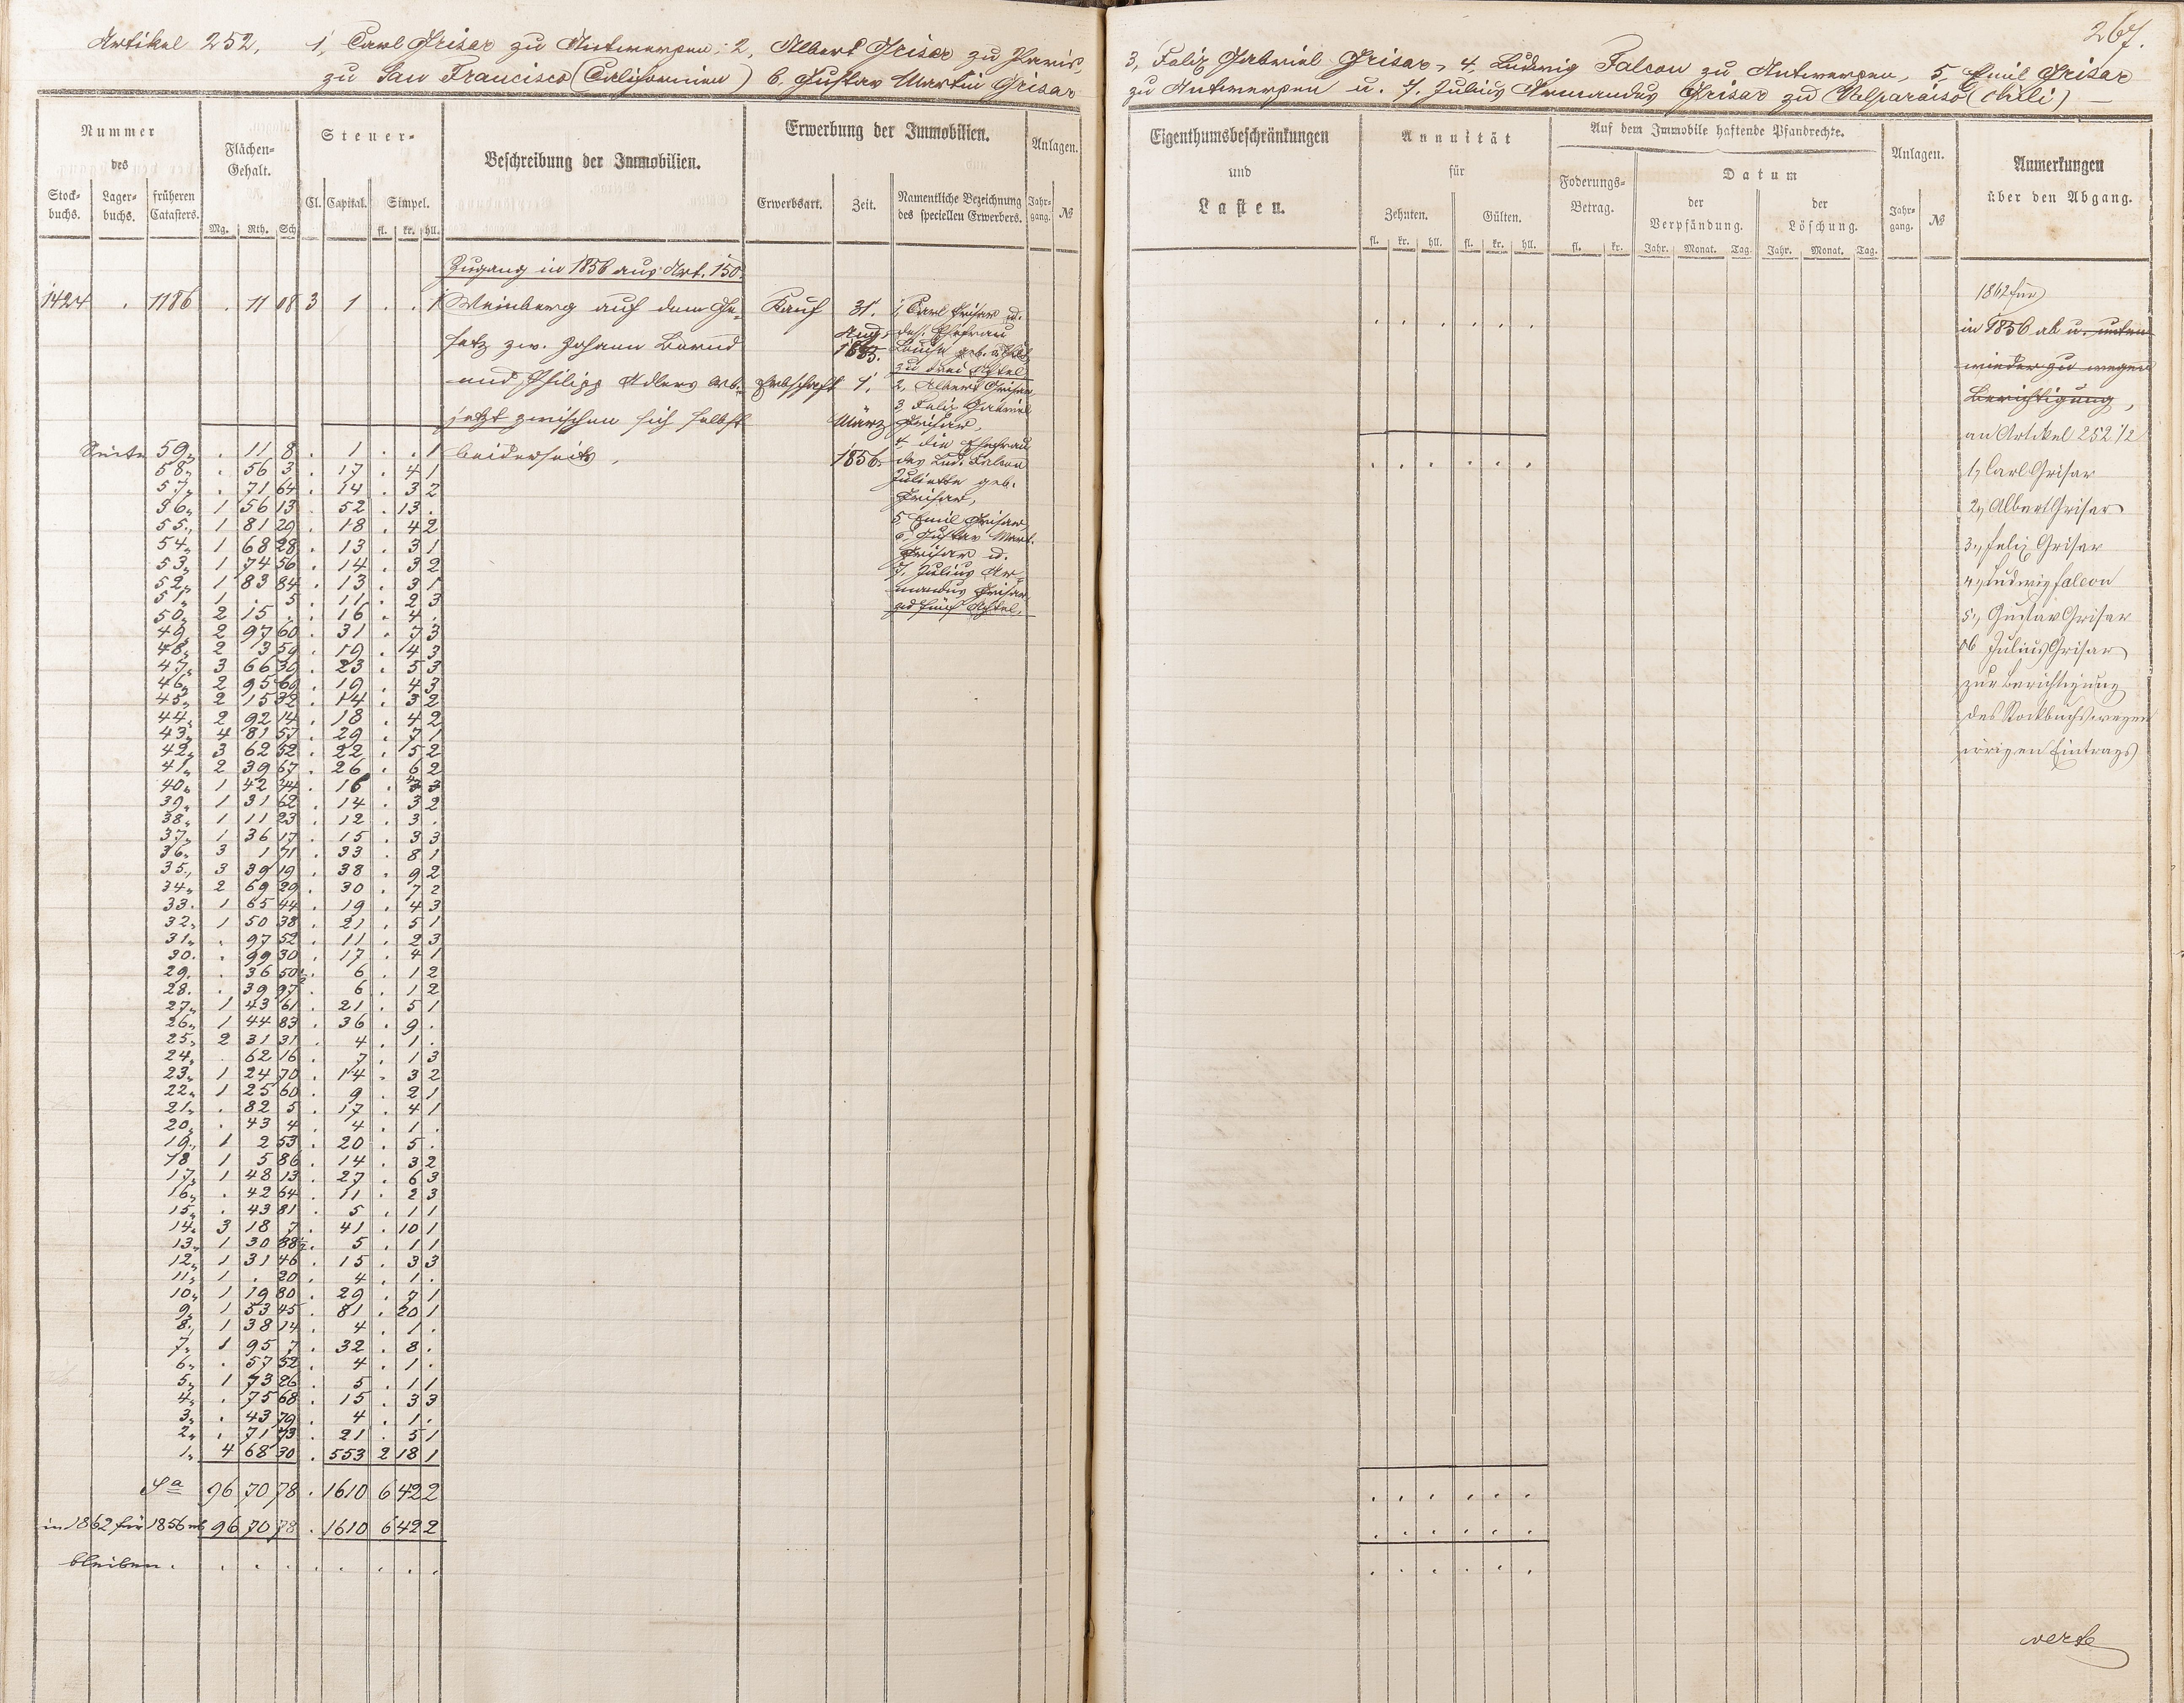 267.
Artikel 252. 1, Carl Grisar zu Antwerpen; 2, Albert Grisar zu Paris, 3, Felix Gabriel Grisar, 4, Ludwig Falcon zu Antwerpen, 5, Emil Grisar
zu San Francisco (Californien) 6. Gustav Martin Grisar zu Antwerpen u. 7. Julius Armandus Grisar zu Valparaiso (Chili) —
Nummer
des
Stock-
buchs.
Lager-
buchs.
früheren
Catasters.
Flächen-
Gehalt.
Mg. Rth. Sch.
Steuer-
Cl. Capital. Simpel.
fl. kr. hll.
Beschreibung der Immobilien.
Erwerbung der Immobilien.
Erwerbsart. Zeit.
Namentliche Bezeichnung
des speciellen Erwerbers.
Anlagen.
Jahr-
gang. №
Eigenthumsbeschränkungen
und
Lasten.
Annuität
für
Zehnten. Gülten.
fl. kr. hll. fl. kr. hll.
Auf dem Immobile haftende Pfandrechte.
Foderungs-
Betrag.
fl. kr.
Datum
der
Verpfändung.
Jahr. Monat. Tag.
der
Löschung.
Jahr. Monat. Tag.
Anlagen.
Jahr-
gang. №
Anmerkungen
über den Abgang.
Zugang in 1856 aus Art. 150.
1424 . 1186 . 11 08 3 1 . . 1
Weinberg auf dem Ge-
setz zw. Johann Bornd
und Philipp Adlers Erb.
jetzt zwischen sich selbst
beiderseits,
Kauf 31.
Aug.
1853.
Erbschaft 1.
März
1856.
1, Carl Grisar u.
dess. Ehefrau
Louise geb.
zu drei Achtel,
2, Albert Grisar,
3, Felix Gabriel
Grisar,
4 die Ehefrau
des Lud. Falcon
Juliette geb.
Grisar,
5, Emil Grisar,
6, Gustav Mart.
Grisar u.
7. Julius Ar-
mandus Grisar
ad fünf Achtel.
Seite 59, . 11 8 . 1 . . 1
58, . 56 3 . 17 . 4 1
57, . 71 64 . 14 . 3 2
56, 1 56 13 . 52 . 13 .
55, 1 81 29 . 18 . 4 2
54, 1 68 28 . 13 . 3 1
53, 1 74 56 . 14 . 3 2
52, 1 83 84 . 13 . 3 1
51, 1 . 5 . 11 . 2 3
50, 2 15 . . 16 . 4 .
49, 2 97 60 . 31 . 7 3
48, 2 3 59 . 19 . 4 3
47, 3 66 30 . 23 . 5 3
46, 2 95 60 . 19 . 4 3
45, 2 15 32 . 14 . 3 2
44, 2 92 14 . 18 . 4 2
43, 4 81 57 . 29 . 7 1
42, 3 62 52 . 22 . 5 2
41, 2 39 67 . 26 . 6 2
40, 1 42 44 . 16 . 3 3
39, 1 31 62 . 14 . 3 2
38, 1 11 23 . 12 . 3 .
37, 1 36 17 . 15 . 3 3
36, 3 1 71 . 33 . 8 1
35, 3 39 19 . 38 . 9 2
34, 2 69 29 . 30 . 7 2
33. 1 65 44 . 19 . 4 3
32, 1 50 38 . 21 . 5 1
31, . 97 52 . 11 . 2 3
30. . 99 30 . 17 . 4 1
29. . 36 50½ . 6 . 1 2
28. . 39 97 . 6 . 1 2
27, 1 43 61 . 21 . 5 1
26, 1 44 83 . 36 . 9 .
25, 2 31 31 . 4 . 1 .
24, . 62 16 . 7 . 1 3
23, 1 24 70 . 14 . 3 2
22, 1 25 60 . 9 . 2 1
21, . 82 5 . 17 . 4 1
20, . 43 4 . 4 . 1 .
19, 1 2 53 . 20 . 5 .
18 1 5 86 . 14 . 3 2
17, 1 48 13 . 27 . 6 3
16, . 42 64 . 11 . 2 3
15, . 43 81 . 5 . 1 1
14, 3 18 7 . 41 . 10 1
13, 1 30 38½ . 5 . 1 1
12, 1 31 46 . 15 . 3 3
11, 1 . 20 . 4 . 1 .
10, 1 19 80 . 29 . 7 1
9, 1 53 45 . 81 . 20 1
8, 1 38 14 . 4 . 1 .
7, 1 95 7 . 32 . 8 .
6, . 57 52 . 4 . 1 .
5, 1 73 26 . 5 . 1 1
4, . 75 68 . 15 . 3 3
3, . 43 79 . 4 . 1 .
2, . 71 73 . 21 . 5 1
1, 4 68 30 . 553 2 18 1
Sa 96 70 78 . 1610 6 42 2
in 1862 für 1856 ab 96 70 78 . 1610 6 42 2
bleiben . . . . . . . . .
1862 für
in 1856 ab u. unten
wieder zu wegen
Berichtigung,
an Artikel 252 1/2
1, Carl Grisar
2, Albert Grisar
3, Felix Grisar
4, Ludwig Falcon
5, Gustav Grisar
6 Julius Grisar
zur Berichtigung
des Stockbuchs wegen
irrigen Eintrags
verte